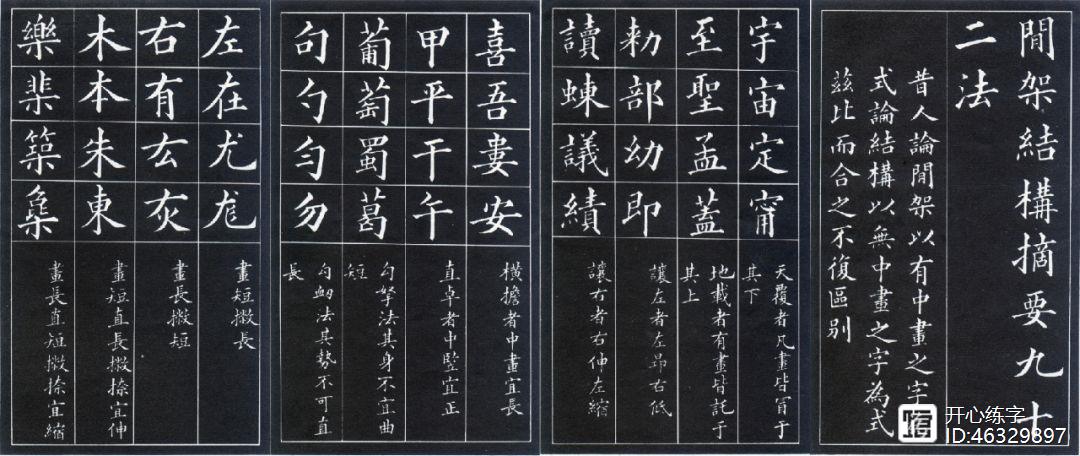 間架結構摘要九十
二法
昔人論間架以有中畫之字
式論結構以無中畫之字為式
茲比而合之不復區别
宇宙定甯
天覆者凡畫皆冒于
其下
至聖孟蓋
地載者有畫皆託于
其上
勑部幼即
讓左者左昂右低
讀蝀議績
讓右者右伸左縮
喜吾婁安
橫擔者中畫宜長
甲平干午
直卓者中竪宜正
葡萄蜀葛
勾拏法其身不宜曲
短
句勺匀勿
勾衂法其勢不可直
長
左在尤尨
畫短撇長
右有厷灰
畫長撇短
木本朱東
畫短直長撇捺宜伸
樂棐築
畫長直短撇捺宜縮
开心练字
ID:46329897